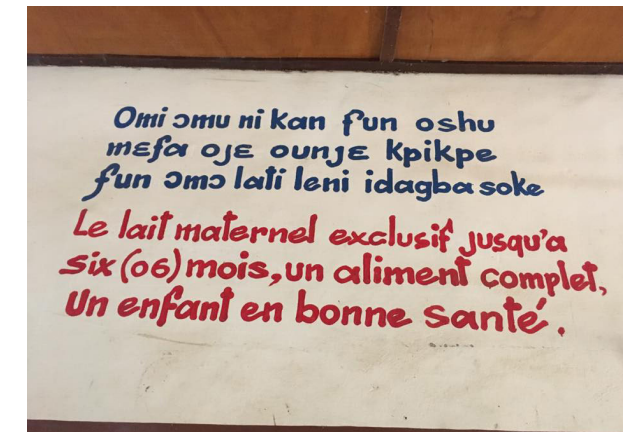 Omi ɔmu ni kan fun oshu
mɛfa ojɛ ounjɛ kpikpe
fun ɔmɔ lati leni idagba soke
Le lait maternel exclusif jusqu'a
six (06) mois, un aliment complet,
Un enfant en bonne santé.